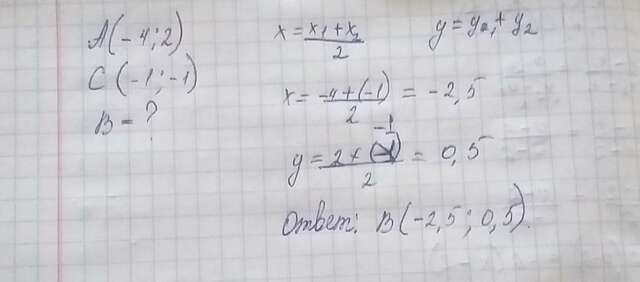 A(-4;2)
C(-1;-1)
B-?
x = (x₁+x₂)/2 y = y₁+y₂
x = (-4+(-1))/2 = -2,5
y = (2+(-1))/2 = 0,5
Ответ: B(-2,5; 0,5).